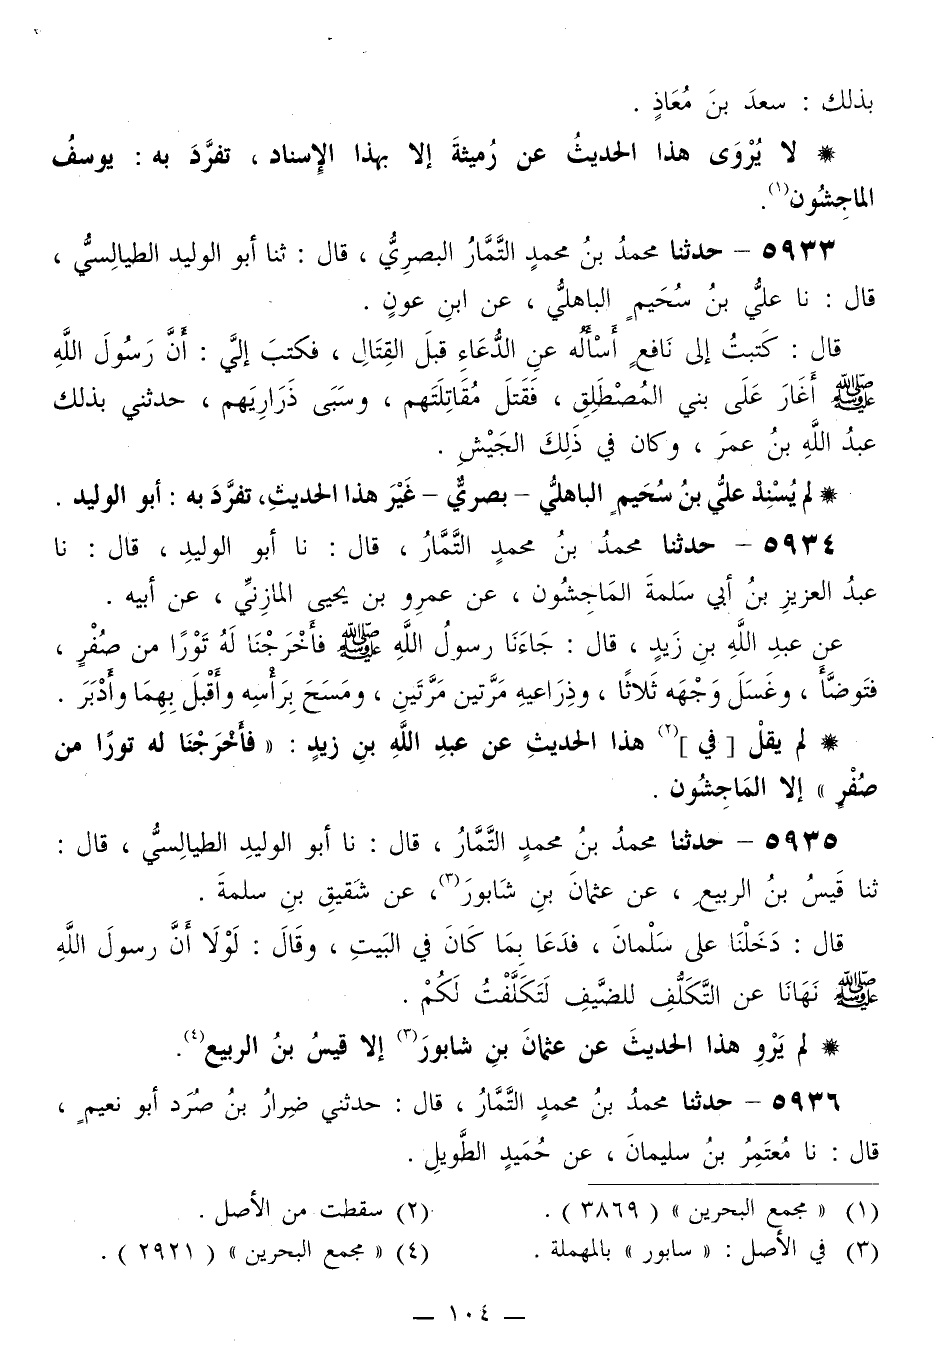 بذلك : سعدَ بنَ مُعَاذٍ .
* لا يُرْوَى هذا الحديثُ عن رُميثةَ إلا بهذا الإسناد ، تفرَّدَ به : يوسفُ
الماجِشُون(١).
٥٩٣٣ – حدثنا محمدُ بنُ محمدٍ التَّمَّارُ البصريُّ ، قال : ثنا أبو الوليد الطيالِسيُّ ،
قال : نا عليُّ بنُ سُحَيمٍ الباهليُّ ، عن ابنِ عونٍ .
قال : كَتبتُ إلى نَافعٍ أَسْأَلُه عنِ الدُّعَاءِ قبلَ القِتَالِ ، فكتبَ إليَّ : أَنَّ رَسُولَ اللَّهِ
ﷺ أَغَارَ عَلَى بني المُصْطَلِقِ ، فَقَتلَ مُقَاتِلَتَهم ، وسَبَى ذَرَارِيَهم ، حدثني بذلك
عبدُ اللَّهِ بنُ عمرَ ، وكان في ذَلِكَ الجَيْشِ .
* لم يُسْنِدْ عليُّ بنُ سُحَيمٍ الباهليُّ – بصريٌّ – غَيْرَ هذا الحديثِ، تفرَّدَ به : أبو الوليد .
٥٩٣٤ – حدثنا محمدُ بنُ محمدٍ التَّمَّارُ ، قال : نا أبو الوليدِ ، قال : نا
عبدُ العزيزِ بنُ أبي سَلمةَ المَاجِشُون ، عن عمرِو بن يحيى المازِنيِّ ، عن أبيه .
عن عبدِ اللَّهِ بنِ زَيدٍ ، قال : جَاءَنَا رسولُ اللَّهِ ﷺ فأَخْرَجْنَا لَهُ تَوْرًا من صُفْرٍ ،
فتَوضَّأَ ، وغَسَلَ وَجْهَه ثَلاثًا ، وذِرَاعيهِ مَرَّتينِ مَرَّتَينِ ، ومَسَحَ بِرَأْسِه وأَقْبلَ بِهِمَا وأَدْبَرَ .
* لم يقلْ [ في ](٢) هذا الحديثِ عن عبدِ اللَّهِ بنِ زيدٍ : « فأَخْرَجْنَا له تورًا من
صُفْرٍ » إلا المَاجِشُون .
٥٩٣٥ – حدثنا محمدُ بنُ محمدٍ التَّمَّارُ ، قال : نا أبو الوليدِ الطيالِسيُّ ، قال :
ثنا قَيسُ بنُ الربيعِ ، عن عثمانَ بنِ شَابورَ(٣)، عن شَقيقِ بنِ سلمةَ .
قال : دَخَلْنَا على سَلْمانَ ، فدَعَا بِمَا كَانَ في البَيتِ ، وقَالَ : لَوْلَا أَنَّ رسولَ اللَّهِ
ﷺ نَهَانَا عن التَّكَلُّفِ للضَّيفِ لَتَكَلَّفْتُ لَكُمْ .
* لم يَرْوِ هذا الحديثَ عن عثمانَ بنِ شابورَ(٣) إلا قيسُ بنُ الربيع(٤).
٥٩٣٦ – حدثنا محمدُ بنُ محمدٍ التَّمَّارُ ، قال : حدثني ضِرارُ بنُ صُرَد أبو نعيمٍ ،
قال : نا مُعتَمِرُ بنُ سليمانَ ، عن حُمَيدٍ الطَّويلِ .
(١) « مجمع البحرين » ( ٣٨٦٩ ) .
(٢) سقطت من الأصل .
(٣) في الأصل : « سابور » بالمهملة .
(٤) « مجمع البحرين » ( ٢٩٢١ ) .
– ١٠٤ –